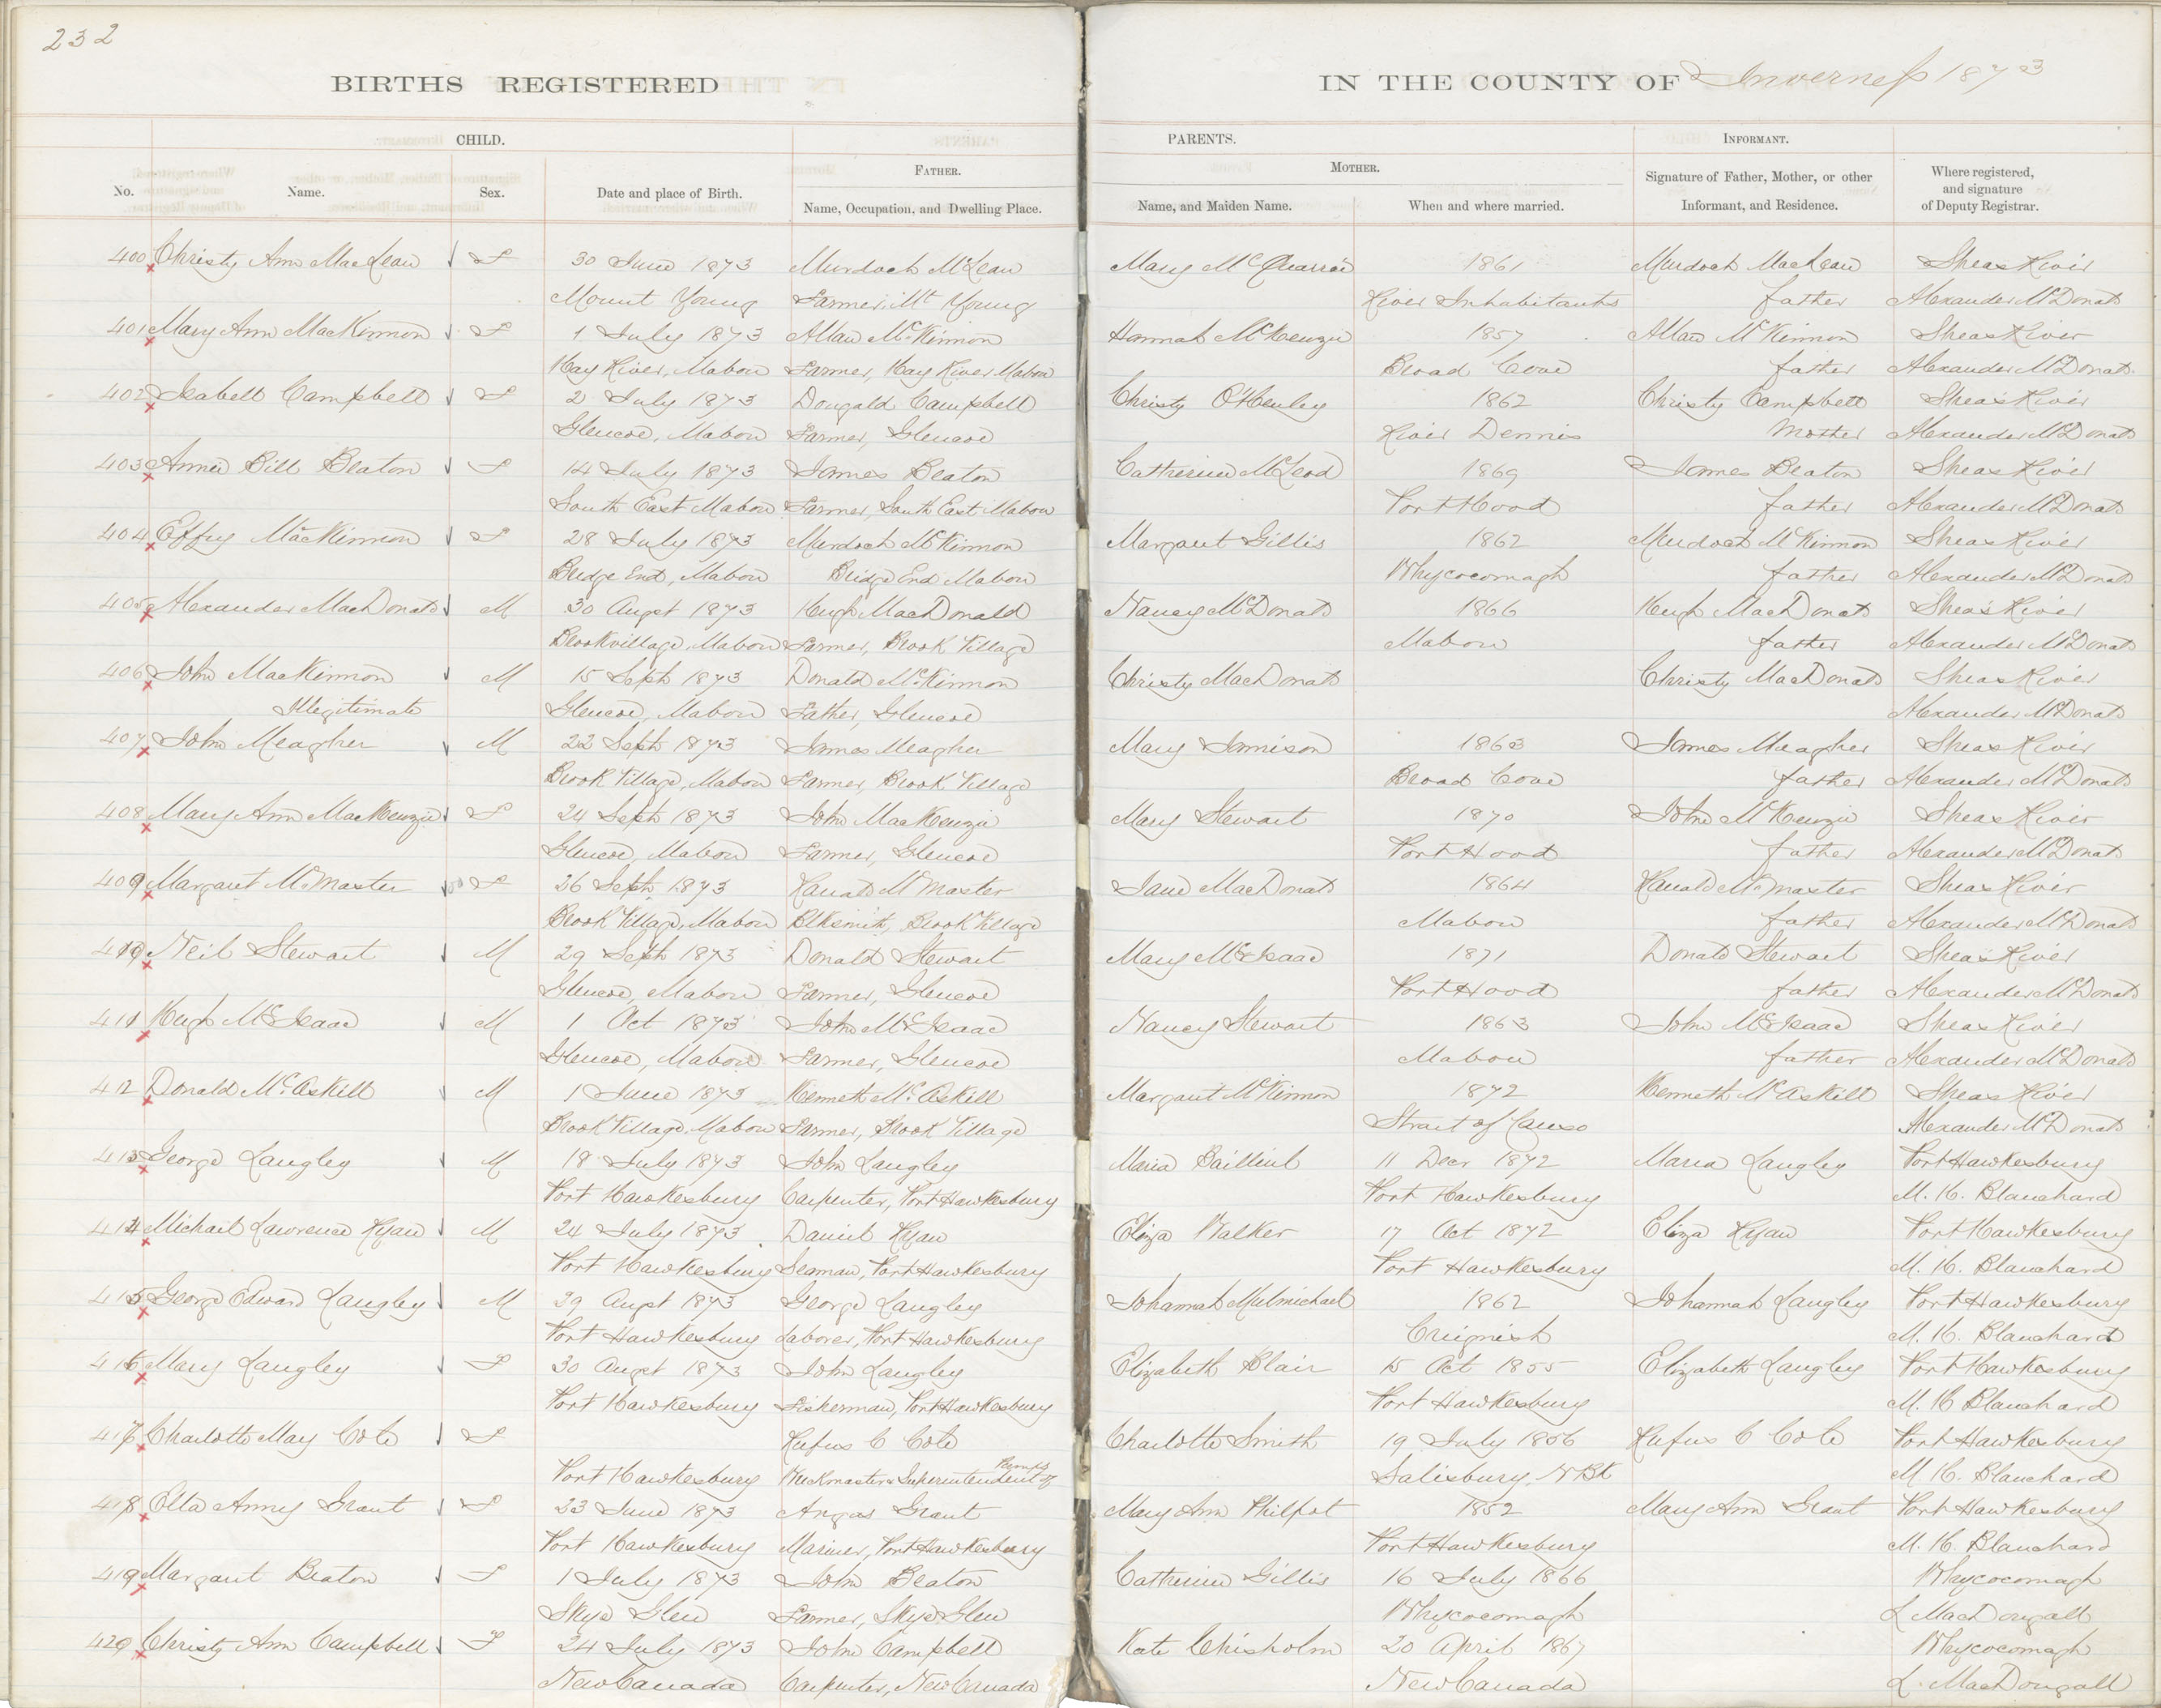 232
BIRTHS REGISTERED IN THE COUNTY OF Inverness 1873
CHILD. PARENTS. INFORMANT.
No. Name. Sex. Date and place of Birth. FATHER. Name, Occupation, and Dwelling Place. MOTHER. Name, and Maiden Name. When and where married. Signature of Father, Mother, or other Informant, and Residence. Where registered, and signature of Deputy Registrar.
400 Christy Ann MacLean F 30 June 1873 Murdoch McLean Mary McQuarrie 1861 Murdoch MacLean Sheas River
Mount Young Farmer, Mt Young River Inhabitants father Alexander McDonald
401 Mary Ann MacKinnon F 1 July 1873 Allan McKinnon Hannah McKenzie 1857 Allan McKinnon Sheas River
Hay River, Mabou Farmer, Hay River Mabou Broad Cove father Alexander McDonald
402 Isabell Campbell F 2 July 1873 Dougald Campbell Christy O'Henley 1862 Christy Campbell Sheas River
Glencoe, Mabou Farmer, Glencoe River Dennis Mother Alexander McDonald
403 Annie Bill Beaton F 14 July 1873 James Beaton Catherine McLeod 1869 James Beaton Sheas River
South East Mabou Farmer, South East Mabou Port Hood father Alexander McDonald
404 Effy MacKinnon F 28 July 1873 Murdoch McKinnon Margaret Gillis 1862 Murdoch McKinnon Sheas River
Bridge End, Mabou Bridge End Mabou Whycocomagh father Alexander McDonald
405 Alexander MacDonald M 30 Augst 1873 Hugh MacDonald Nancy McDonald 1866 Hugh MacDonald Sheas River
Brookvillage, Mabou Farmer, Brook Village Mabou father Alexander McDonald
406 John MacKinnon M 15 Sept 1873 Donald McKinnon Christy MacDonald Christy MacDonald Sheas River
Illegitimate Glencoe, Mabou Father, Glencoe Alexander McDonald
407 John Meagher M 22 Sept 1873 James Meagher Mary Jamison 1863 James Meagher Sheas River
Brook Village, Mabou Farmer, Brook Village Broad Cove father Alexander McDonald
408 Mary Ann MacKenzie F 24 Sept 1873 John MacKenzie Mary Stewart 1870 John McKenzie Sheas River
Glencoe, Mabou Farmer, Glencoe Port Hood father Alexander McDonald
409 Margaret McMaster F 26 Sept 1873 Ranald McMaster Jane MacDonald 1864 Ranald McMaster Sheas River
Brook Village, Mabou Blksmith, Brook Village Mabou father Alexander McDonald
410 Neil Stewart M 29 Sept 1873 Donald Stewart Mary McIsaac 1871 Donald Stewart Sheas River
Glencoe, Mabou Farmer, Glencoe Port Hood father Alexander McDonald
411 Hugh McIsaac M 1 Oct 1873 John McIsaac Nancy Stewart 1863 John McIsaac Sheas River
Glencoe, Mabou Farmer, Glencoe Mabou father Alexander McDonald
412 Donald McAskill M 1 June 1873 Kenneth McAskill Margaret McKinnon 1872 Kenneth McAskill Sheas River
Brook Village, Mabou Farmer, Brook Village Strait of Canso Alexander McDonald
413 George Langley M 18 July 1873 John Langley Maria Bailliul 11 Decr 1872 Maria Langley Port Hawkesbury
Port Hawkesbury Carpenter, Port Hawkesbury Port Hawkesbury M. H. Blanchard
414 Michael Lawrence Ryan M 24 July 1873 Daniel Ryan Eliza Walker 17 Oct 1872 Eliza Ryan Port Hawkesbury
Port Hawkesbury Seaman, Port Hawkesbury Port Hawkesbury M. H. Blanchard
415 George Edward Langley M 29 Augst 1873 George Langley Johannah Mulmichael 1862 Johannah Langley Port Hawkesbury
Port Hawkesbury laborer, Port Hawkesbury Creignish M. H. Blanchard
416 Mary Langley F 30 Augst 1873 John Langley Elizabeth Blair 15 Oct 1855 Elizabeth Langley Port Hawkesbury
Port Hawkesbury Fisherman, Port Hawkesbury Port Hawkesbury M. H. Blanchard
417 Charlotte May Cole F Rufus C Cole Charlotte Smith 19 July 1856 Rufus C Cole Port Hawkesbury
Port Hawkesbury Wreckmaster & Superintendent of Pumps Salisbury N Bk M. H. Blanchard
418 Etta Anny Grant F 23 June 1873 Angus Grant Mary Ann Philpot 1852 Mary Ann Grant Port Hawkesbury
Port Hawkesbury Mariner, Port Hawkesbury Port Hawkesbury M. H. Blanchard
419 Margaret Beaton F 1 July 1873 John Beaton Catherine Gillis 16 July 1866 Whycocomagh
Skye Glen Farmer, Skye Glen Whycocomagh L MacDougall
420 Christy Ann Campbell F 24 July 1873 John Campbell Kate Chisholm 20 April 1867 Whycocomagh
New Canada Carpenter, New Canada New Canada L. MacDougall